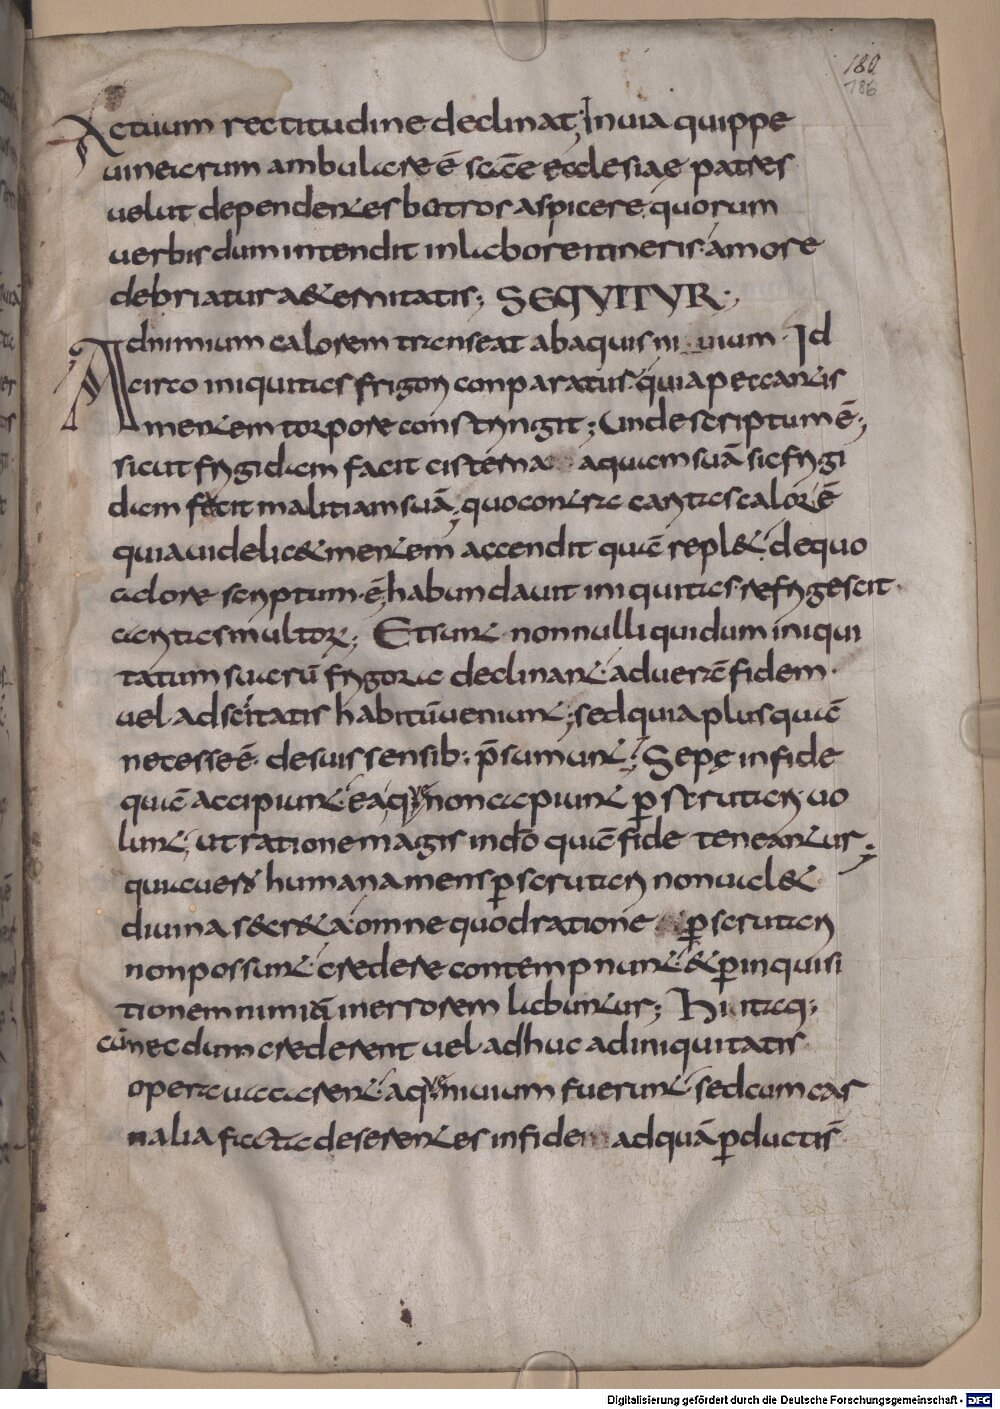 180
186
Actuum rectitudine declinat; In uia quippe
uinearum ambulare ē scāe ecclesiae patres
uelut dependentes botros aspicere quorum
uerbis dum intendit in labore itineris amore
debriatur aeternitatis; SEQVITVR;
Ad nimium calorem transeat ab aquis niuium. Id
circo iniquitas frigori conparatus quia peccantis
mentem torpore constringit; Unde scriptum ē;
sicut frigidam facit cisterna aquam suā sic frigi
dam fecit malitiam suā; quo contra caritas calor ē
quia uidelicet mentem accendit quā replet; de quo
calore scriptum ē; habundauit iniquitas refrigescit
caritas multoꝝ; Et sunt nonnulli qui dum iniqui
tatum suarū frigora declinant ad uerā fidem
uel ad scītatis habitū ueniunt; sed quia plus quā
necesse ē de suis sensib; p̄sumunt; Sepę in fide
quā accipiunt ea quę non capiunt ꝑscrutari uo
lunt; ut ratione magis in dō quā fide teneantur;
quia uero humana mens ꝑscrutari non ualet
divina secreta omne quod ratione ꝑscrutari
non possunt credere contempnunt & ꝑ inquisi
tionem nimiā in errorem labuntur; Hi itaq;
cū nec dum crederent uel adhuc ad iniquitatis
opera uacarent aquę niuium fuerunt sed cum car
nalia facta deserentes in fide ad quā ꝑducti s̄
Digitalisierung gefördert durch die Deutsche Forschungsgemeinschaft - DFG